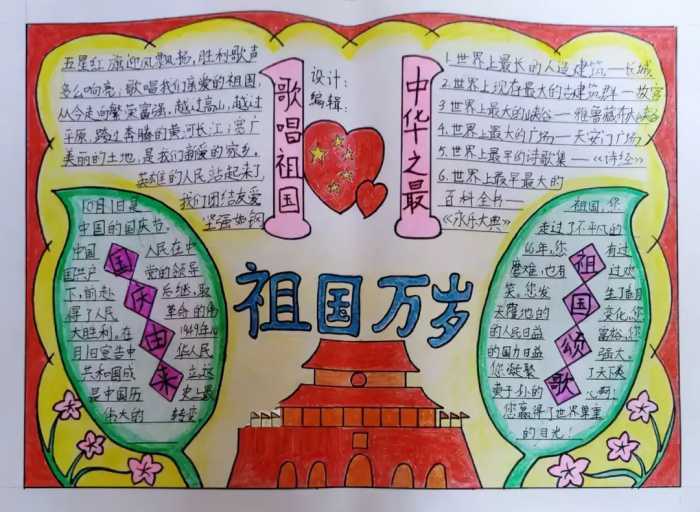 五星红旗迎风飘扬，胜利歌声
多么响亮；歌唱我们亲爱的祖国，
从今走向繁荣富强。越过高山，越过
平原，跨过奔腾的黄河长江；宽广
美丽的土地，是我们亲爱的家乡，
英雄的人民站起来了
我们团结友爱
坚强如钢
歌唱祖国
设计：
编辑：
中华之最
1.世界上最长的人造建筑——长城
2.世界上现存最大的古建筑群——故宫
3.世界上最大的峡谷——雅鲁藏布大峡谷
4.世界上最大的广场——天安门广场
5.世界上最早的诗歌集——《诗经》
6.世界上最早最大的
百科全书——
《永乐大典》
祖国万岁
国庆由来
10月1日是
中国的国庆节。
中国 人民在中
国共产 党的领导
下，前赴 后继，取
得了人民 革命的伟
大胜利，在 1949年10
月1日宣告中 华人民
共和国成 立，这
是中国历 史上最
伟大的 转变
祖国颂歌
祖国，您
走过了不平凡的
64年，您 有过
磨难，也有 过欢
笑，您发 生了翻
天覆地的 变化，您
的人民日益 富裕，您
的国力日益 强大。
您凝聚 了天下炎
黄子孙的 心啊！
您赢得了世界尊重
的目光！